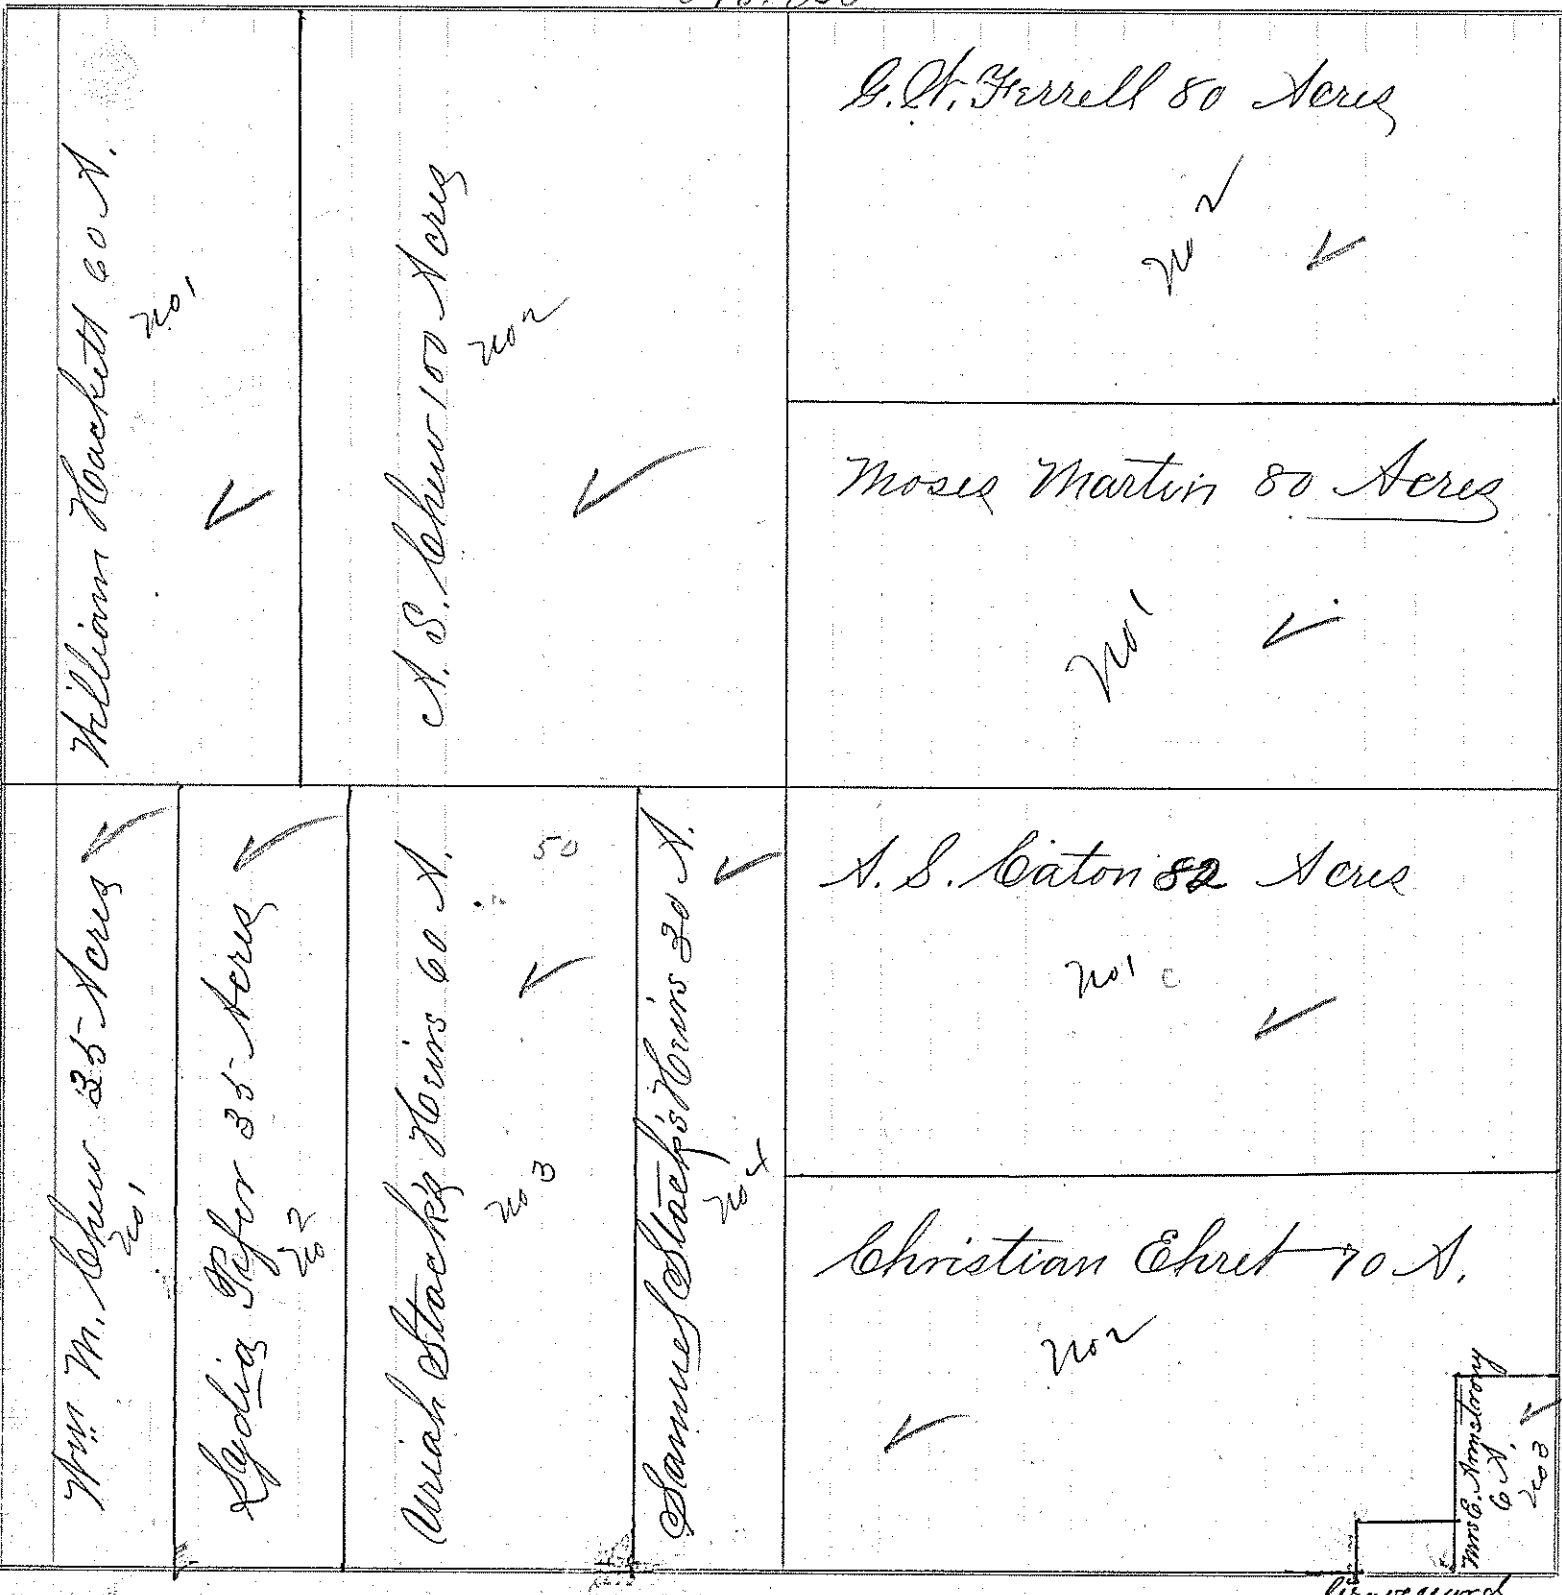 William Hackett 60 A.
no 1
A. S. Chew 100 Acres
no 2
G. W. Ferrell 80 Acres
no 2
Moses Martin 80 Acres
no 1
Wm M. Chew 35 Acres
no 1
Lydia Pifer 35 Acres
no 2
Uriah Stack's Heirs 60 A.
50
no 3
Samuel Stack's Heirs 30 A.
no 4
A. S. Caton 82 Acres
no 1 c
Christian Ehret 70 A.
no 2
Mrs E. Armstrong
6 A.
no 3
Graveyard